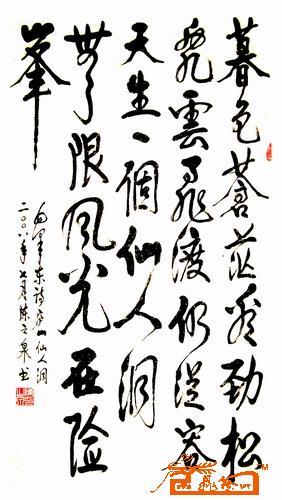 暮色蒼茫看劲松
乱雲飞渡仍從容
天生一個仙人洞
無限风光在险
峯
毛泽东诗庐山仙人洞
二〇〇八年七月陈之书